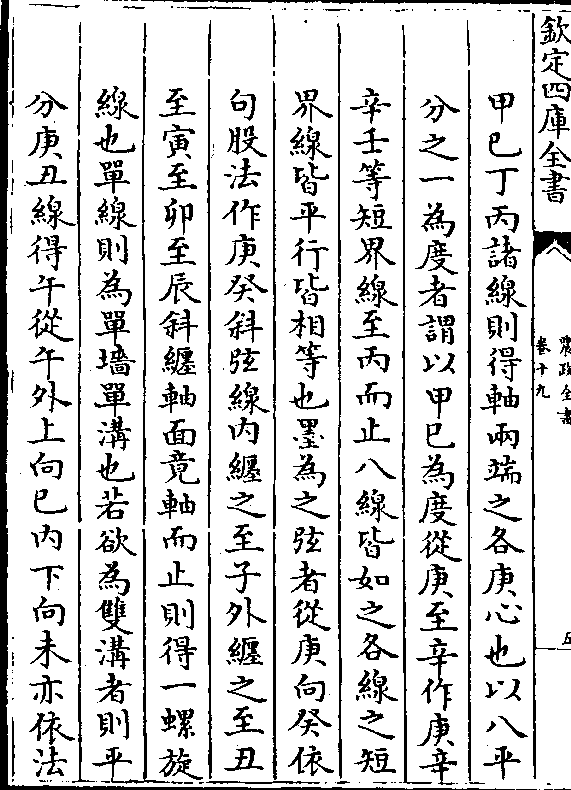 欽定四庫全書
農政全書
卷十九
五
甲巳丁丙諸線則得軸兩端之各庚心也以八平
分之一為度者謂以甲巳為度從庚至辛作庚辛
辛壬等短界線至丙而止八線皆如之各線之短
界線皆平行皆相等也墨為之弦者從庚向癸依
句股法作庚癸斜弦線内纏之至子外纏之至丑
至寅至卯至辰斜纏軸面竟軸而止則得一螺旋
線也單線則為單墻單溝也若欲為雙溝者則平
分庚丑線得午從午外上向巳内下向未亦依法